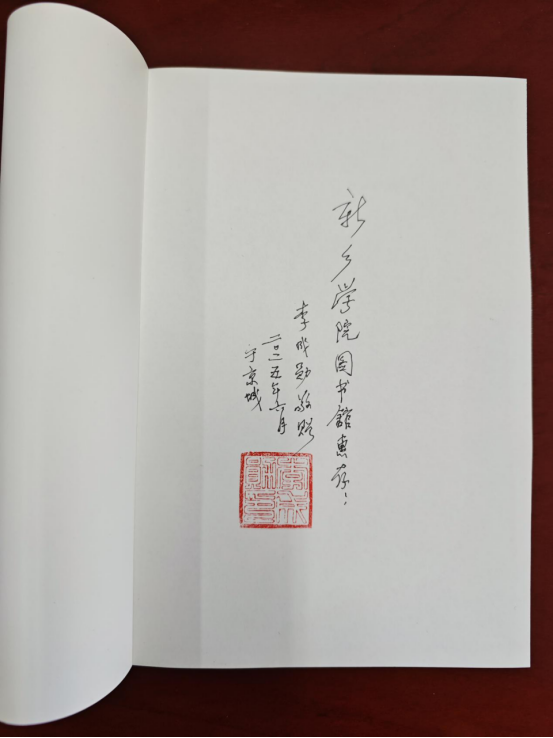 新乡学院图书馆惠存：
李成勋敬赠
二〇二五年六月
于京城
李成勋印